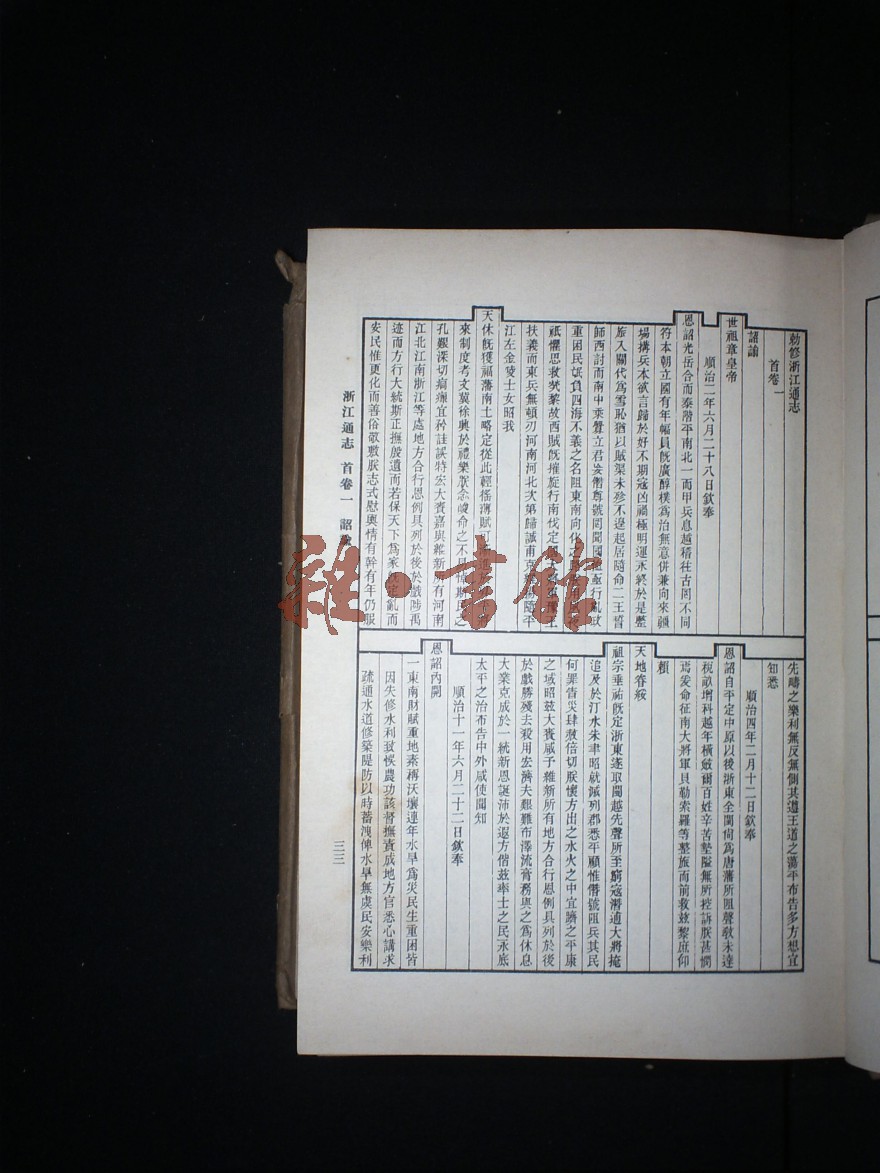 勅修浙江通志
首卷一
詔諭
世祖章皇帝
順治二年六月二十八日欽奉
恩詔光岳合而泰階平南北一而甲兵息越稽往古罔不同
符本朝立國有年幅員旣廣醇樸為治無意併兼向來疆
場搆兵本欲言歸於好不期寇凶禍極明運永終於是整
旅入關代為雪恥猶以賊渠未殄不遑起居隨命二王誓
師西討而南中乘釁立君妄僭尊號罔聞國 行亂政
重困民 負四海不義之名阻東南向化之
祇懼思救焚黎故西賊旣摧旋行南伐定國
扶義而東兵無頓刃河南河北次第歸誠南京 隨平
江左金陵士女昭我
天休旣獲福藩南土略定從此輕徭薄賦可
來制度考文冀徐興於禮樂朕念 命之不易 斯民之
孔艱深切痌瘝宜矜詿誤特宏大賚嘉與維新所有河南
江北江南浙江等處地方合行恩例具列於後於戲陟禹
迹而方行大統斯正撫殷遺而若保天下為家 亂而
安民惟更化而善俗敬敷朕志式慰輿情有幹有年仍服
先疇之樂利無反無側其遵王道之蕩平布告多方想宜
知悉
順治四年二月十二日欽奉
恩詔自平定中原以後浙東全閩尙為唐藩所阻聲敎未達
稅畝增科越年橫斂爾百姓辛苦墊隘無所控訴朕甚憫
焉爰命征南大將軍貝勒索羅等整旅而前救玆黎庶仰
賴
天地眷綏
祖宗垂祐旣定浙東遂取閩越先聲所至窮寇潛逋大將掩
追及於汀水朱聿 就滅列郡悉平顧惟僭號阻兵其民
何罪眚災肆赦倍切朕懷方出之水火之中宜躋之平康
之域昭玆大賚咸子維新所有地方合行恩例具列於後
於戲勝殘去殺用宏濟夫艱難布澤流膏務與之為休息
大業克成於一統新恩誕沛於遐方偕玆率土之民永底
太平之治布告中外咸使聞知
順治十一年六月二十二日欽奉
恩詔內開
一東南財賦重地素稱沃壤連年水旱為災民生重困皆
因失修水利致悞農功該督撫責成地方官悉心講求
疏通水道修築隄防以時蓄洩俾水旱無虞民安樂利
浙江通志 首卷一 詔諭
三三
雜·書館